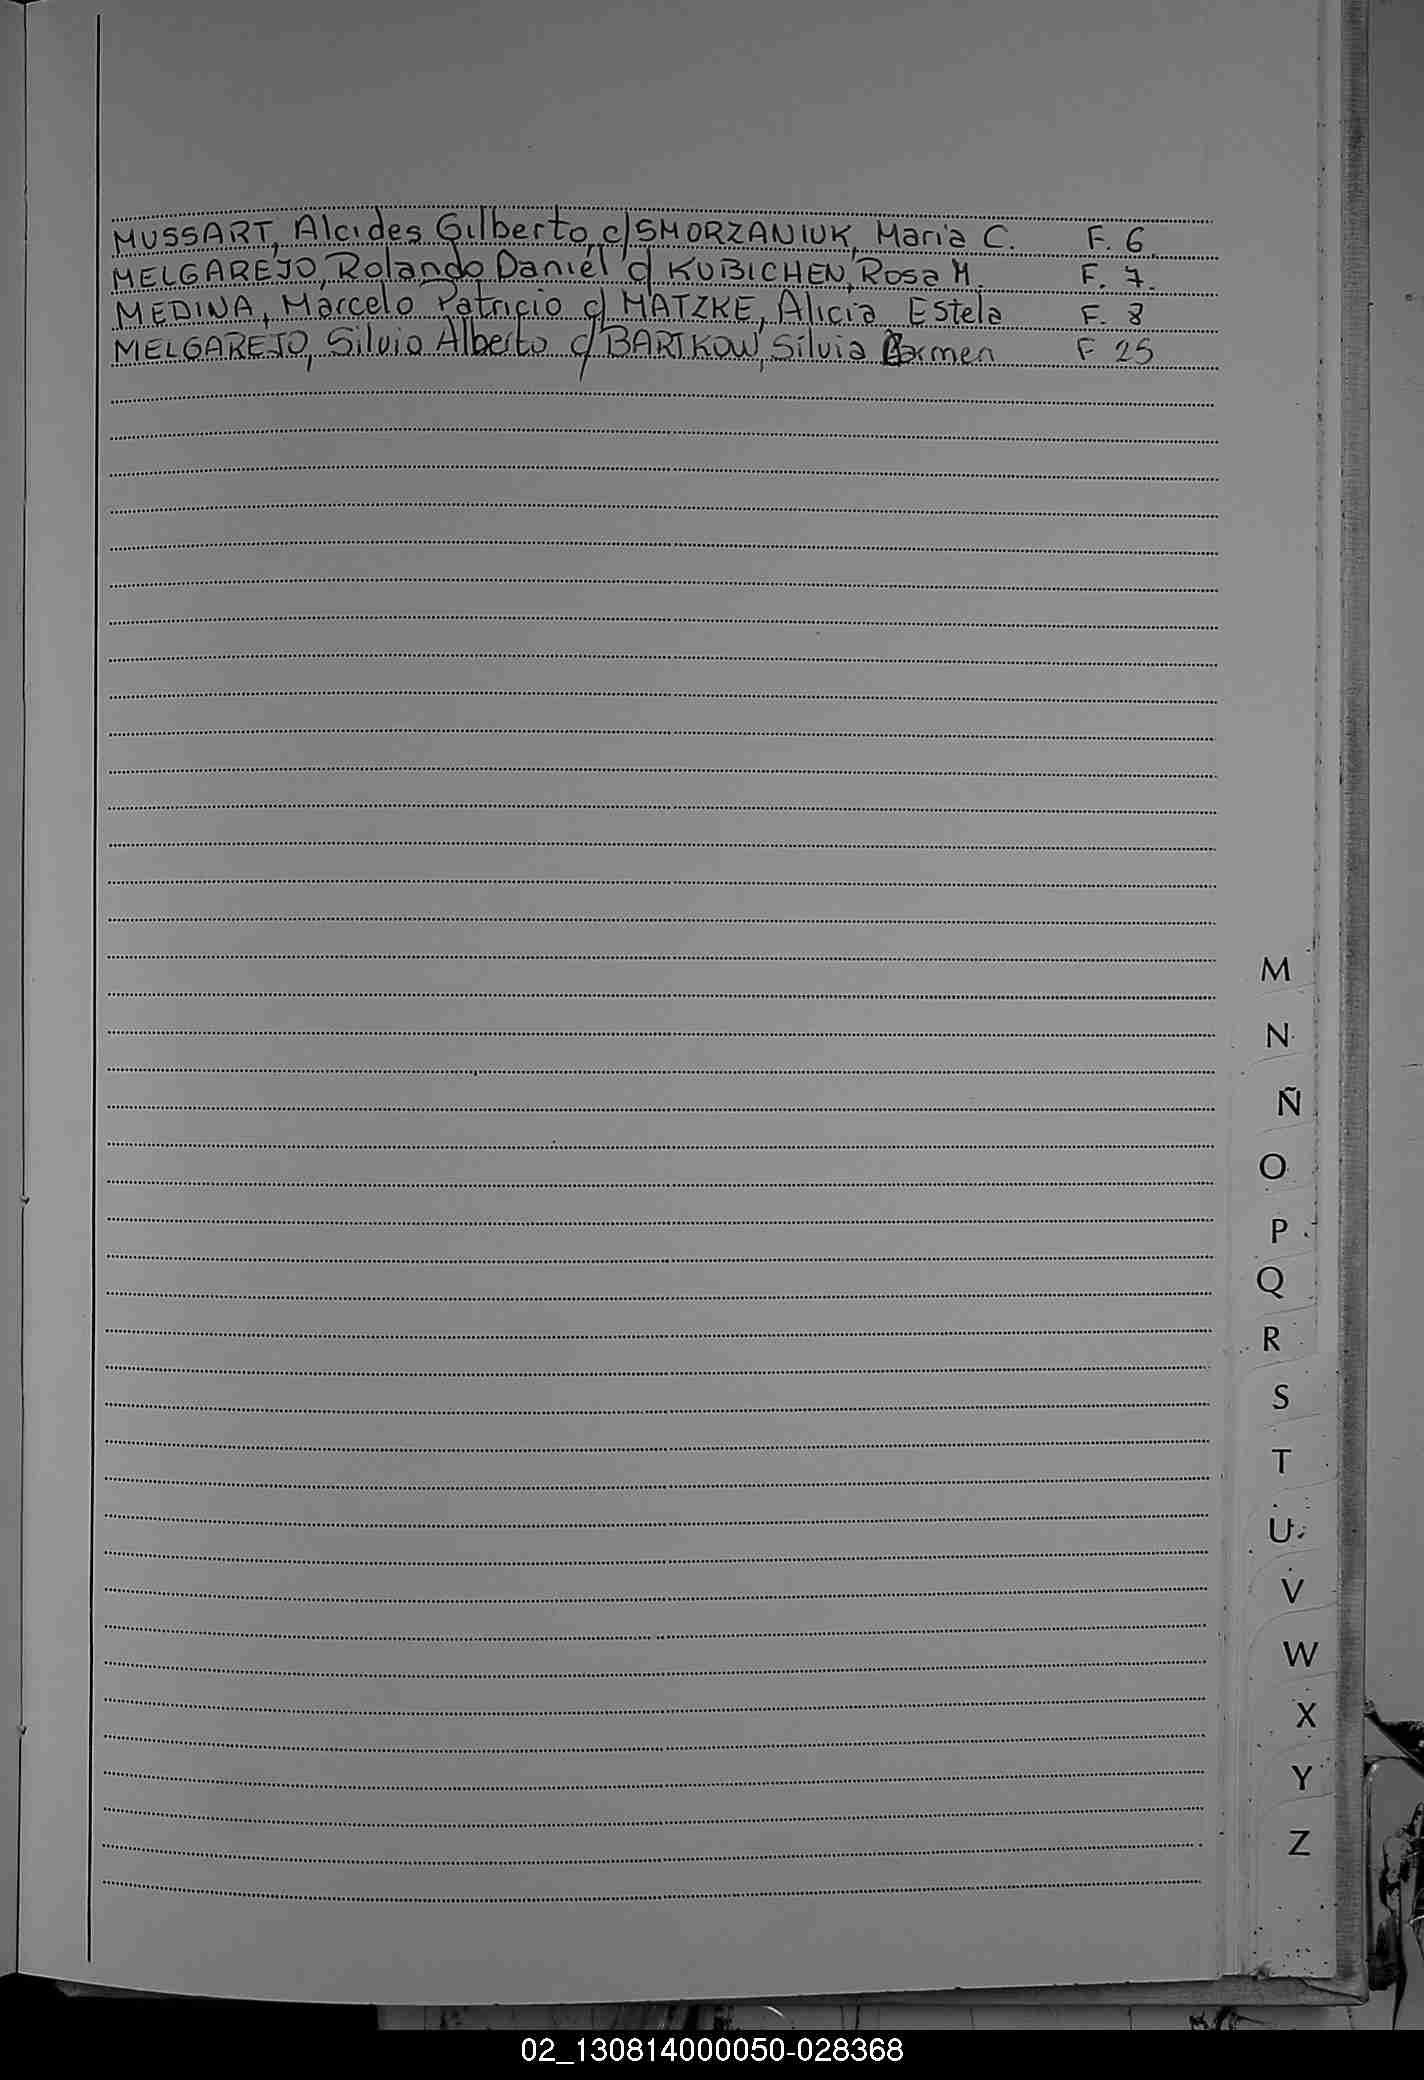 MUSSART, Alcides Gilberto, c/SMORZANIUK, Maria C. F. 6.
MELGAREJO, Rolando Daniel c/ KUBICHEN, Rosa M. F. 7.
MEDINA, Marcelo Patricio c/ MATZKE, Alicia Estela F. 8
MELGAREJO, Silvio Alberto c/ BARTKOW, Silvia Carmen F 25
M
N
Ñ
O
P
Q
R
S
T
U
V
W
X
Y
Z
02_130814000050-028368